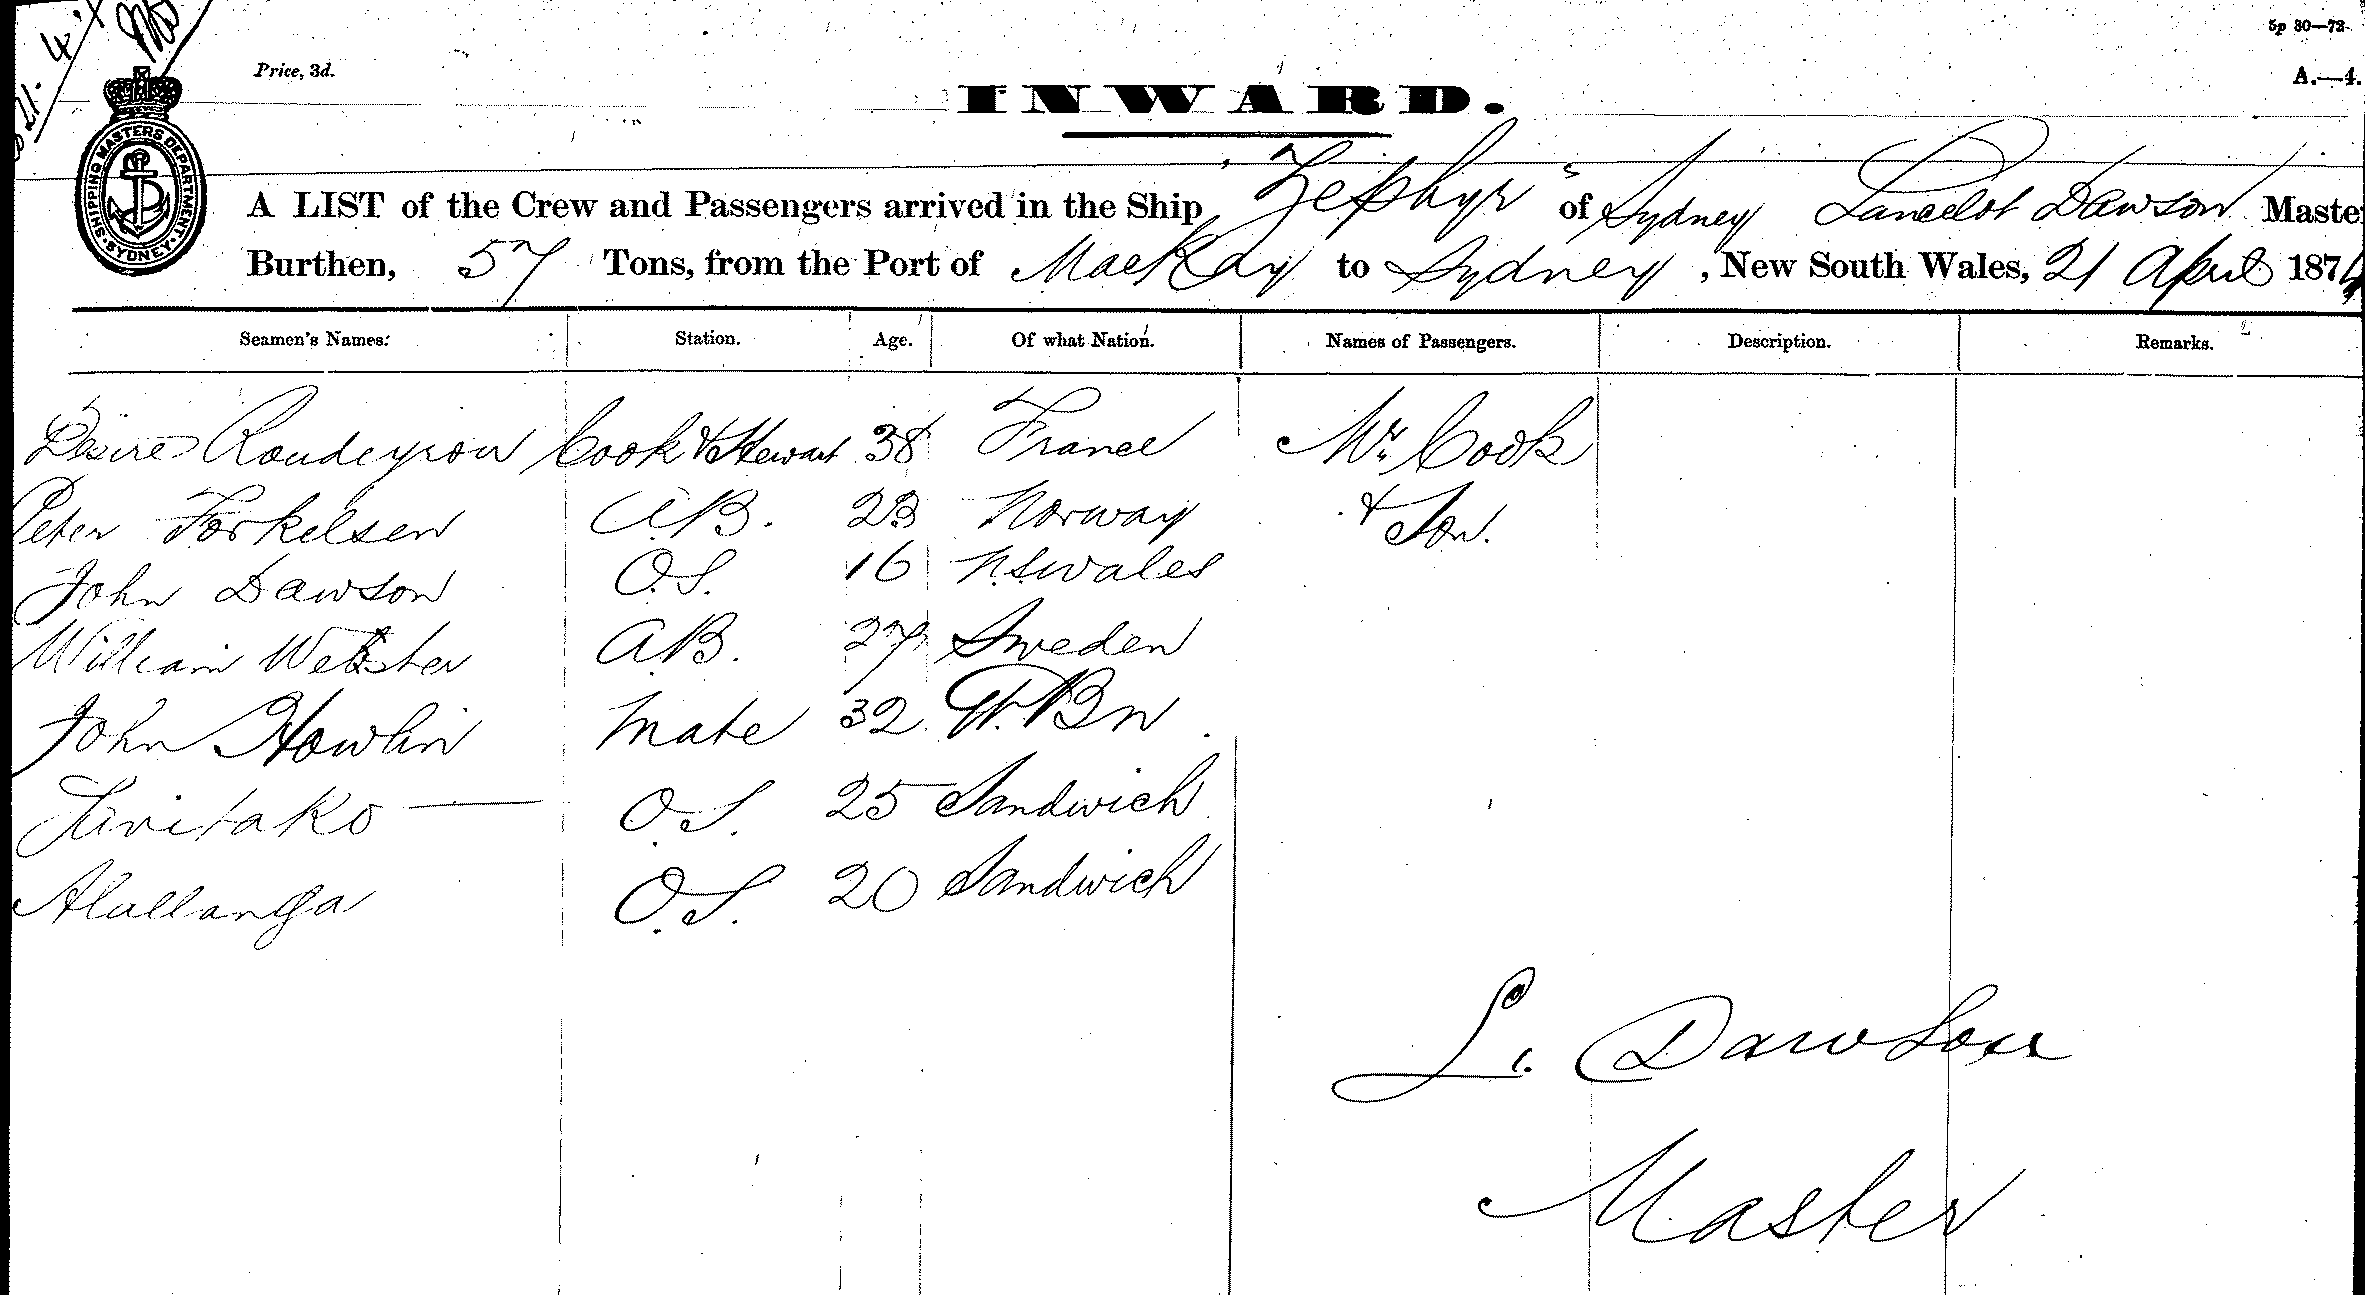 5p 30—72
Price, 3d.
A.—4.
INWARD.
SHIPPING MASTERS DEPARTMENT SYDNEY
A LIST of the Crew and Passengers arrived in the Ship "Zephyr" of Sydney Lancelot Dawson Master
Burthen, 57 Tons, from the Port of MacKay to Sydney, New South Wales, 21 April 1874
Seamen's Names. Station. Age. Of what Nation. Names of Passengers. Description. Remarks.
Desire Roudeyron Cook & Stewart 38 France Mr. Cook
Peter Forkelsen A.B. 23 Norway & Son.
John Dawson O.S. 16 N.S Wales
William Webster A.B. 27 Sweden
John Howlin Mate 32 Gt. Bn
O.S. 25 Sandwich
Alullanga O.S. 20 Sandwich
L. Dawson
Master